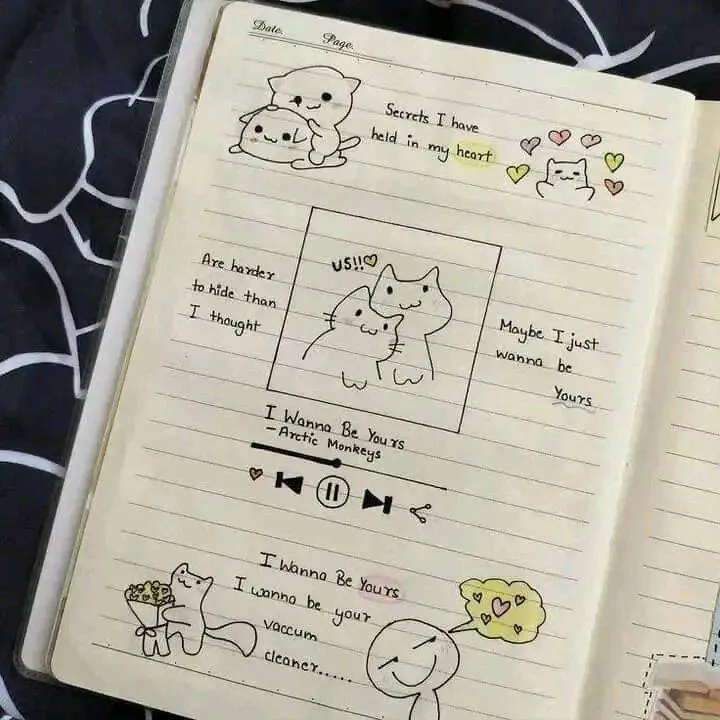 Date.
Page.
Secrets I have
held in my heart
US!!
Are harder
to hide than
I thought
Maybe I just
wanna be
Yours
I Wanna Be Yours
- Arctic Monkeys
I Wanna Be Yours
I wanna be your
vaccum
cleaner.....